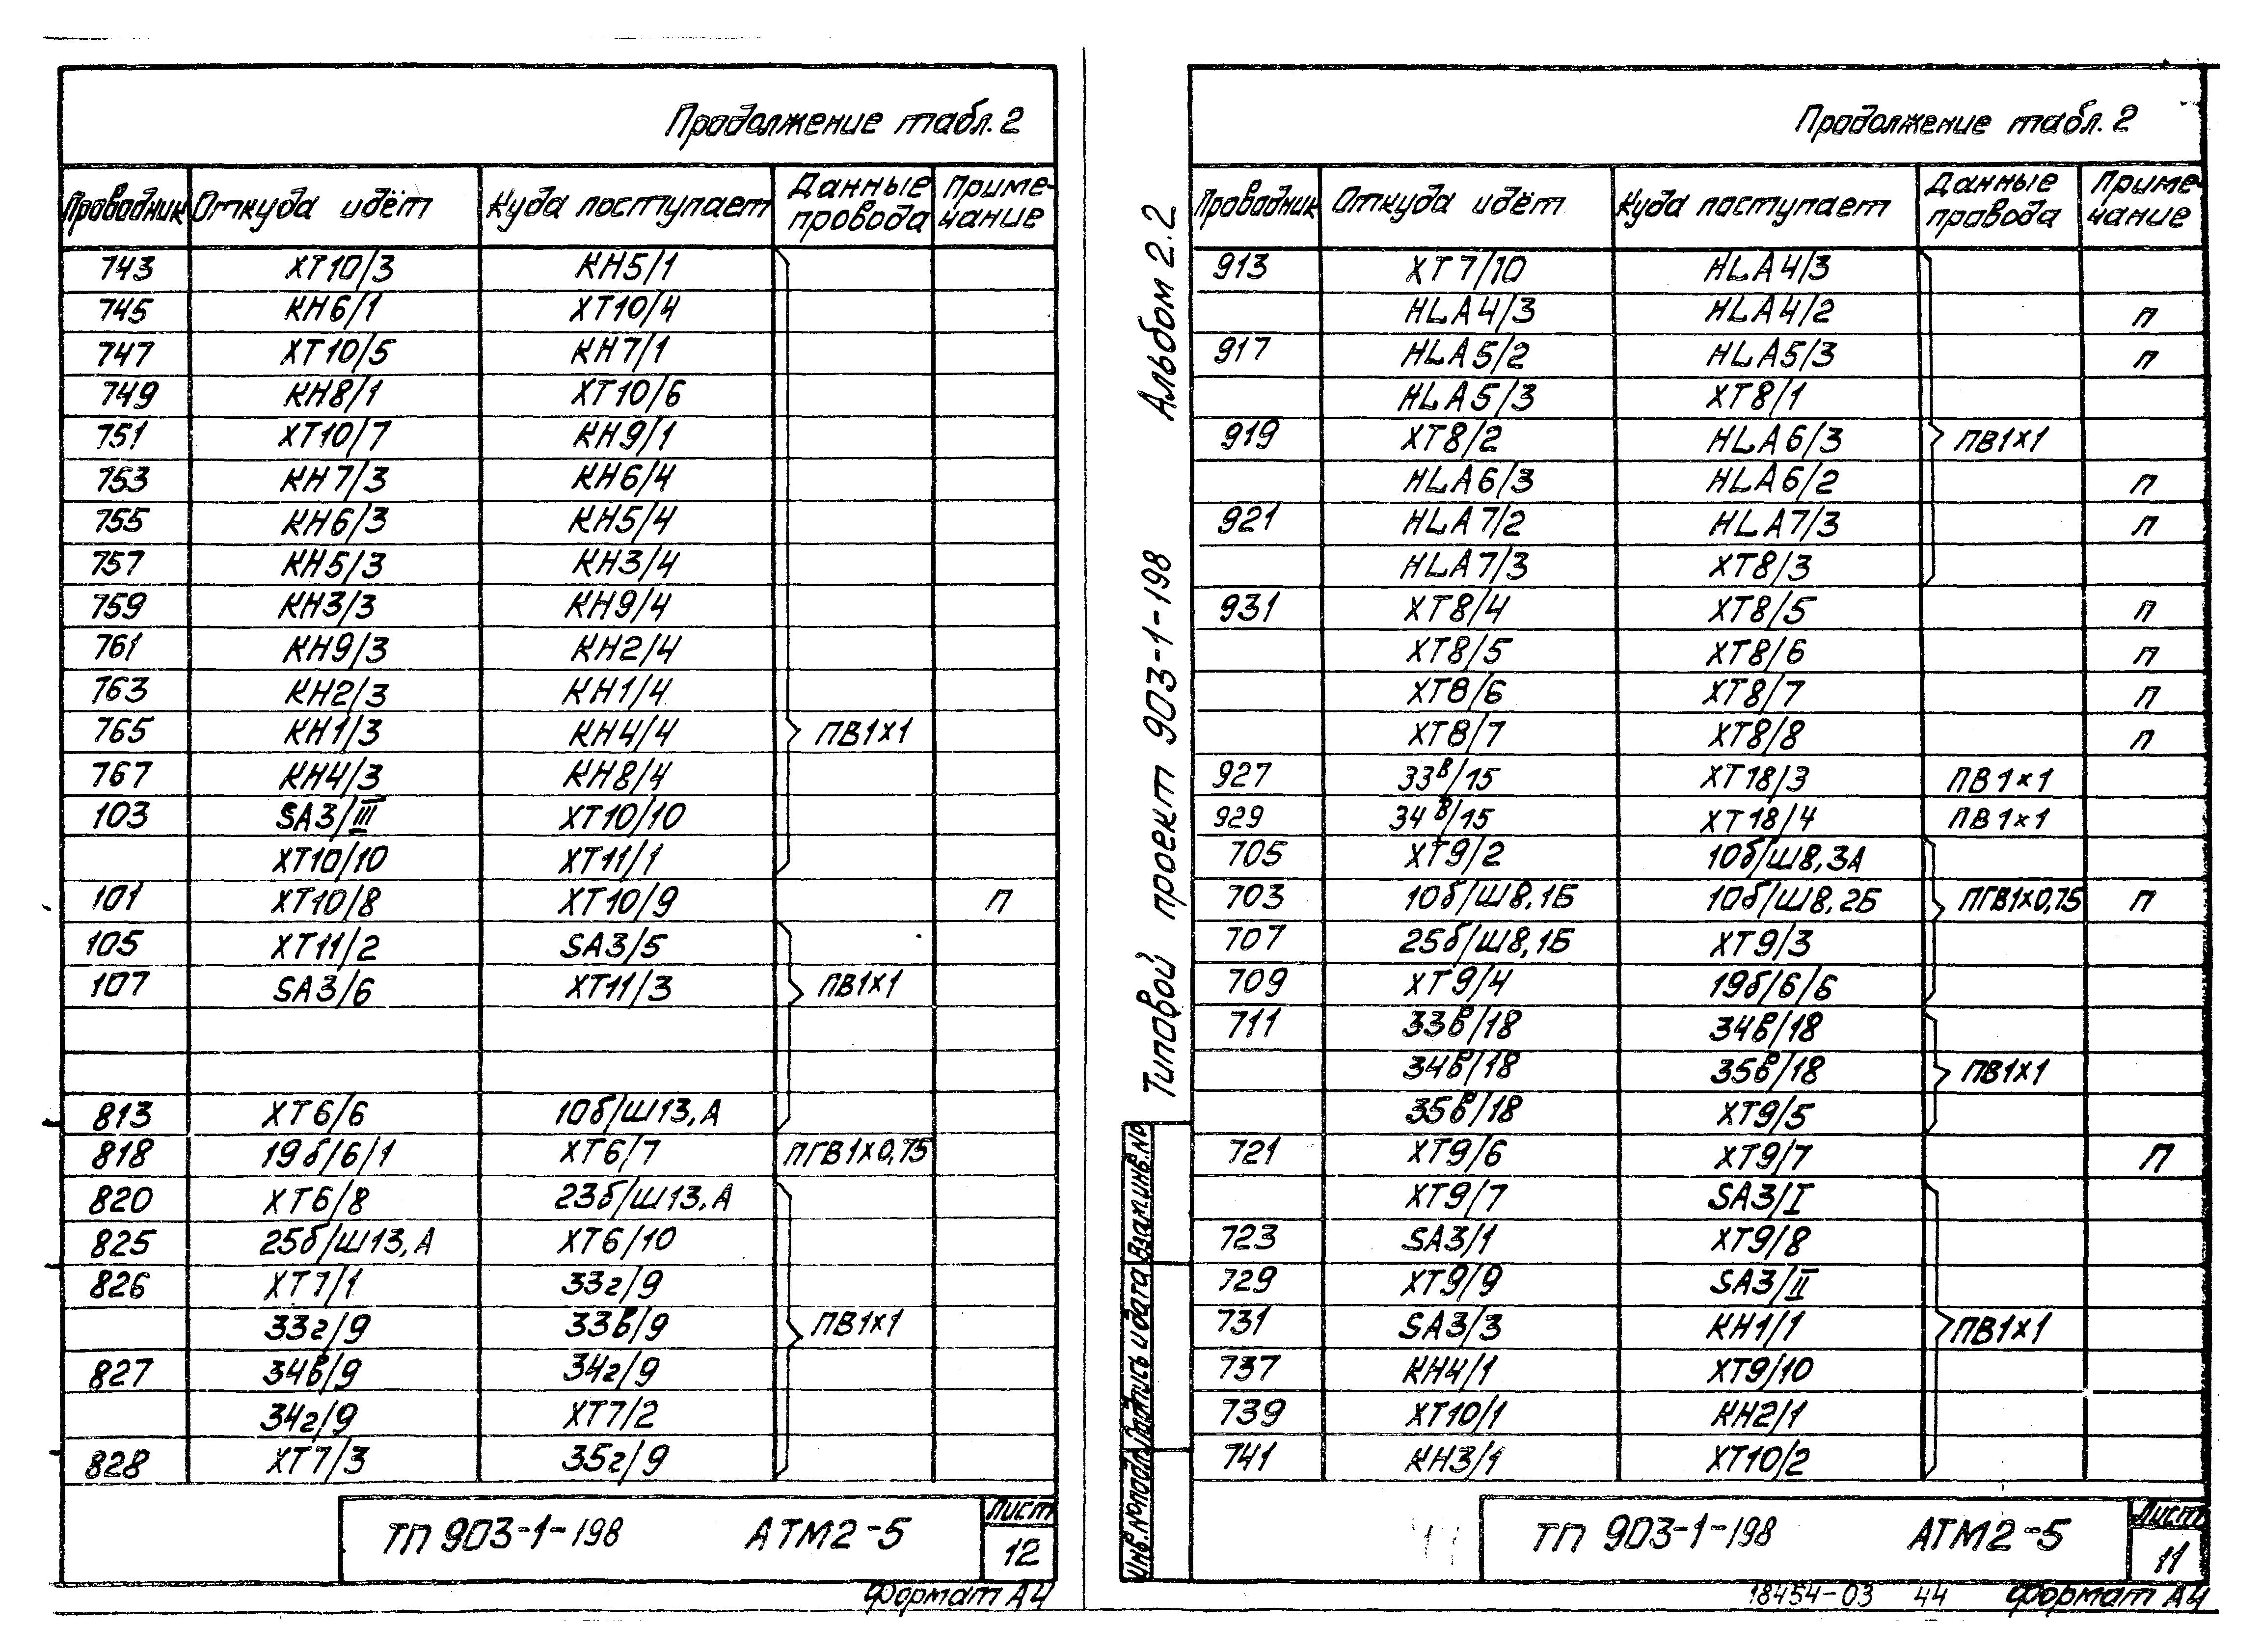 Продолжение табл. 2
Проводник Откуда идёт Куда поступает Данные провода Примечание
743 XT10/3 КН5/1
745 КН6/1 XT10/4
747 XT10/5 КН7/1
749 КН8/1 XT10/6
751 XT10/7 КН9/1
753 КН7/3 КН6/4
755 КН6/3 КН5/4
757 КН5/3 КН3/4
759 КН3/3 КН9/4
761 КН9/3 КН2/4
763 КН2/3 КН1/4
765 КН1/3 КН4/4 ПВ1х1
767 КН4/3 КН8/4
103 SA3/III XT10/10
XT10/10 XT11/1
101 XT10/8 XT10/9 п
105 XT11/2 SA3/5
107 SA3/6 XT11/3 ПВ1х1
813 XT6/6 10б/Ш13,А
818 19б/6/1 XT6/7 ПГВ1х0,75
820 XT6/8 23б/Ш13,А
825 25б/Ш13,А XT6/10
826 XT7/1 33г/9
33г/9 33в/9 ПВ1х1
827 34в/9 34г/9
34г/9 XT7/2
828 XT7/3 35г/9
ТП 903-1-198 АТМ2-5 Лист 12
Формат А4
Альбом 2.2
Типовой проект 903-1-198
Инв.№подл. Подпись и дата Взам.инв.№
Продолжение табл. 2
Проводник Откуда идёт Куда поступает Данные провода Примечание
913 XT7/10 HLA4/3
HLA4/3 HLA4/2 п
917 HLA5/2 HLA5/3 п
HLA5/3 XT8/1
919 XT8/2 HLA6/3 ПВ1х1
HLA6/3 HLA6/2 п
921 HLA7/2 HLA7/3 п
HLA7/3 XT8/3
931 XT8/4 XT8/5 п
XT8/5 XT8/6 п
XT8/6 XT8/7 п
XT8/7 XT8/8 п
927 33в/15 XT18/3 ПВ1х1
929 34в/15 XT18/4 ПВ1х1
705 XT9/2 10б/Ш8,3А
703 10б/Ш8,1Б 10б/Ш8,2Б ПГВ1х0,75 п
707 25б/Ш8,1Б XT9/3
709 XT9/4 19б/6/6
711 33в/18 34в/18
34в/18 35в/18 ПВ1х1
35в/18 XT9/5
721 XT9/6 XT9/7 П
XT9/7 SA3/I
723 SA3/1 XT9/8
729 XT9/9 SA3/II
731 SA3/3 КН1/1 ПВ1х1
737 КН4/1 XT9/10
739 XT10/1 КН2/1
741 КН3/1 XT10/2
ТП 903-1-198 АТМ2-5 Лист 11
18454-03 44 Формат А4